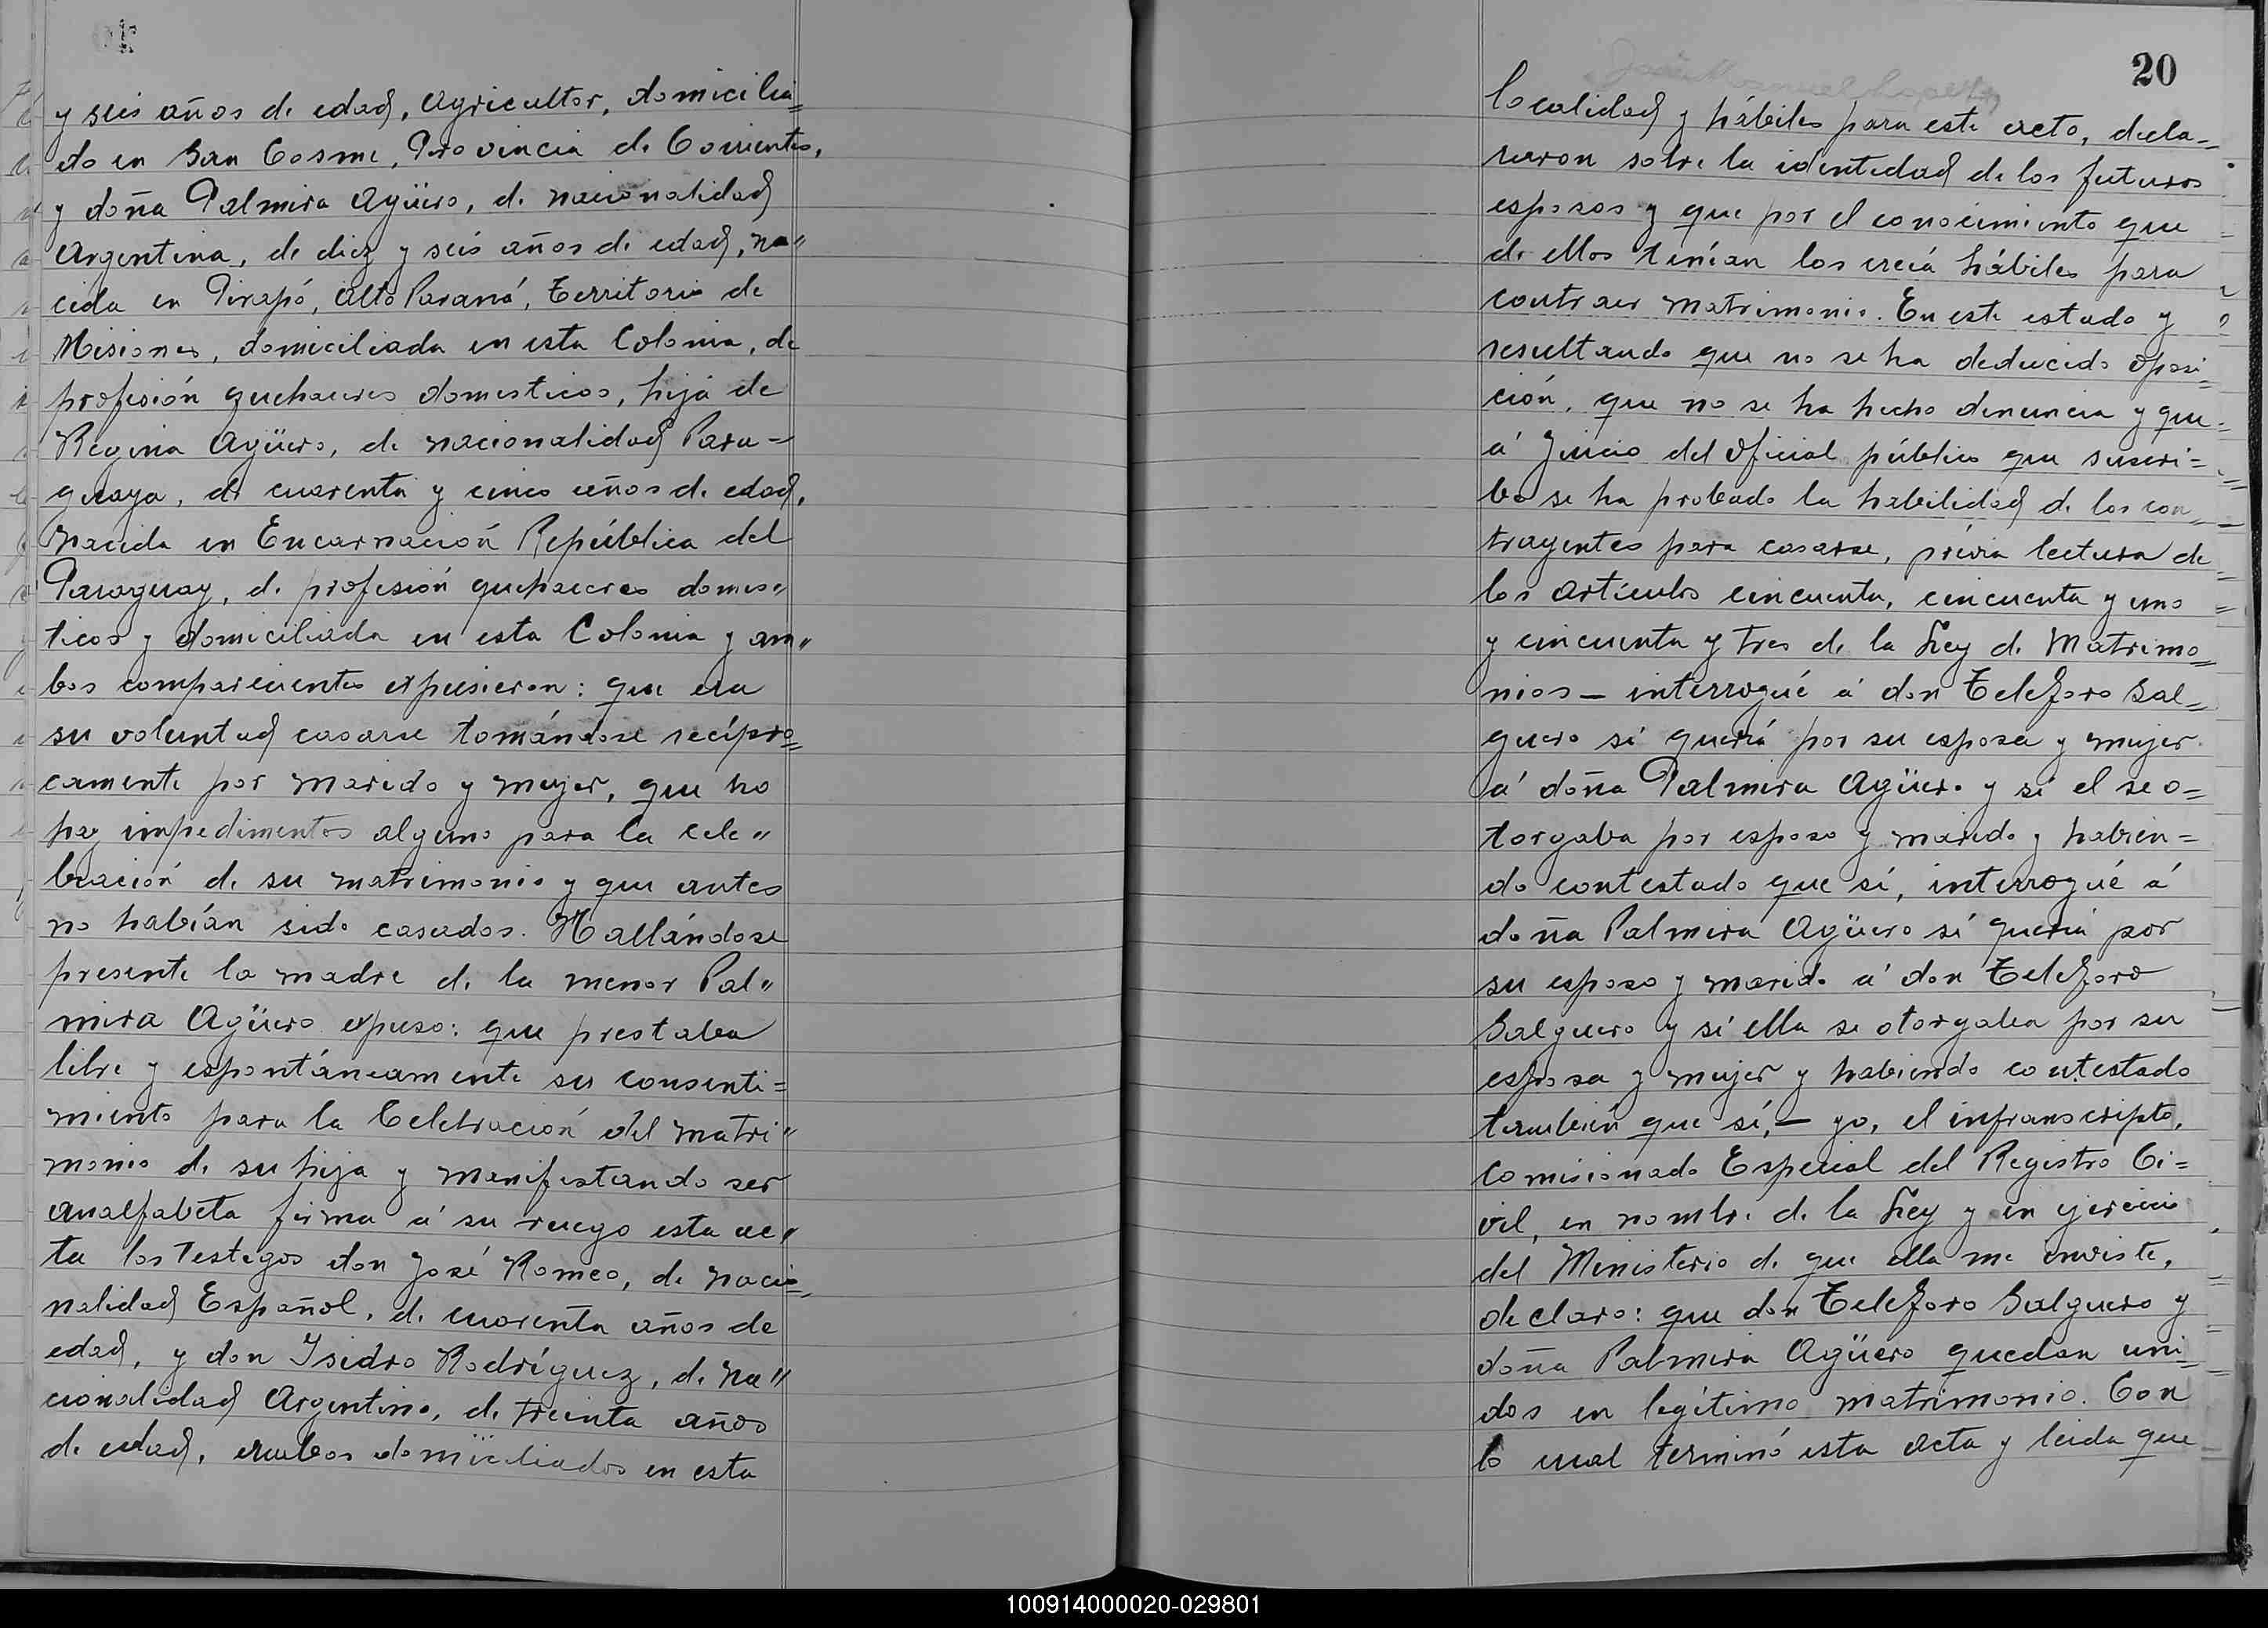 y seis años de edad, Agricultor, domicilia=
do en San Cosme, Provincia de Corrientes,
y doña Palmira Agüero, de nacionalidad
Argentina, de diez y seis años de edad, na"
cida en Pirapó, Alto Paraná, Territorio de
Misiones, domiciliada en esta Colonia, de
profesión quehaceres domesticos, hija de
Regina Agüero, de nacionalidad Para=
guaya, de cuarenta y cinco años de edad,
nacida en Encarnación República del
Paraguay, de profesión quehaceres domes"
ticos y domiciliada en esta Colonia y am"
bos comparecientes expusieron: que era
su voluntad casarse tomándose recípro=
camente por marido y mujer, que no
hay impedimentos alguno para la cele"
bración de su matrimonio y que antes
no habían sido casados. Hallándose
presente la madre de la menor Pal"
mira Agüero expuso: que prestaba
libre y espontáneamente su consenti=
miento para la Celebración del matri"
monio de su hija y manifestando ser
analfabeta firma á su ruego esta ac"
ta los testigos don José Romeo, de nacio=
nalidad Español, de cuarenta años de
edad, y don Isidro Rodríguez, de na"
cionalidad Argentino, de treinta años
de edad, ambos domiciliados en esta
20
José Manuel
localidad y hábiles para este acto, decla=
raron sobre la identidad de los futuros
esposos y que por el conocimiento que
de ellos tenían los creía hábiles para
contraer matrimonio. En este estado y
resultando que no se ha deducido oposi=
ción, que no se ha hecho denuncia y que
á Juicio del Oficial público que suscri=
be se ha probado la habilidad de los con=
trayentes para casarse, prévia lectura de
los artículos cincuenta, cincuenta y uno
y cincuenta y tres de la Ley de Matrimo=
nios — interrogué á don Telesforo Sal=
guero si quería por su esposa y mujer
á doña Palmira Agüero y si el se o=
torgaba por esposo y marido y habien=
do contestado que sí, interrogué á
doña Palmira Agüero si quería por
su esposo y marido á don Telesforo
Salguero y si ella se otorgaba por su
esposa y mujer y habiendo contestado
tambien que sí, — yo, el infranscripto,
Comisionado Especial del Registro Ci=
vil, en nombre de la Ley y en ejercicio
del Ministerio de que ella me inviste,
declaro: que don Telesforo Salguero y
doña Palmira Agüero quedan uni=
dos en legítimo matrimonio. Con
lo cual terminó esta acta y leida que
100914000020-029801